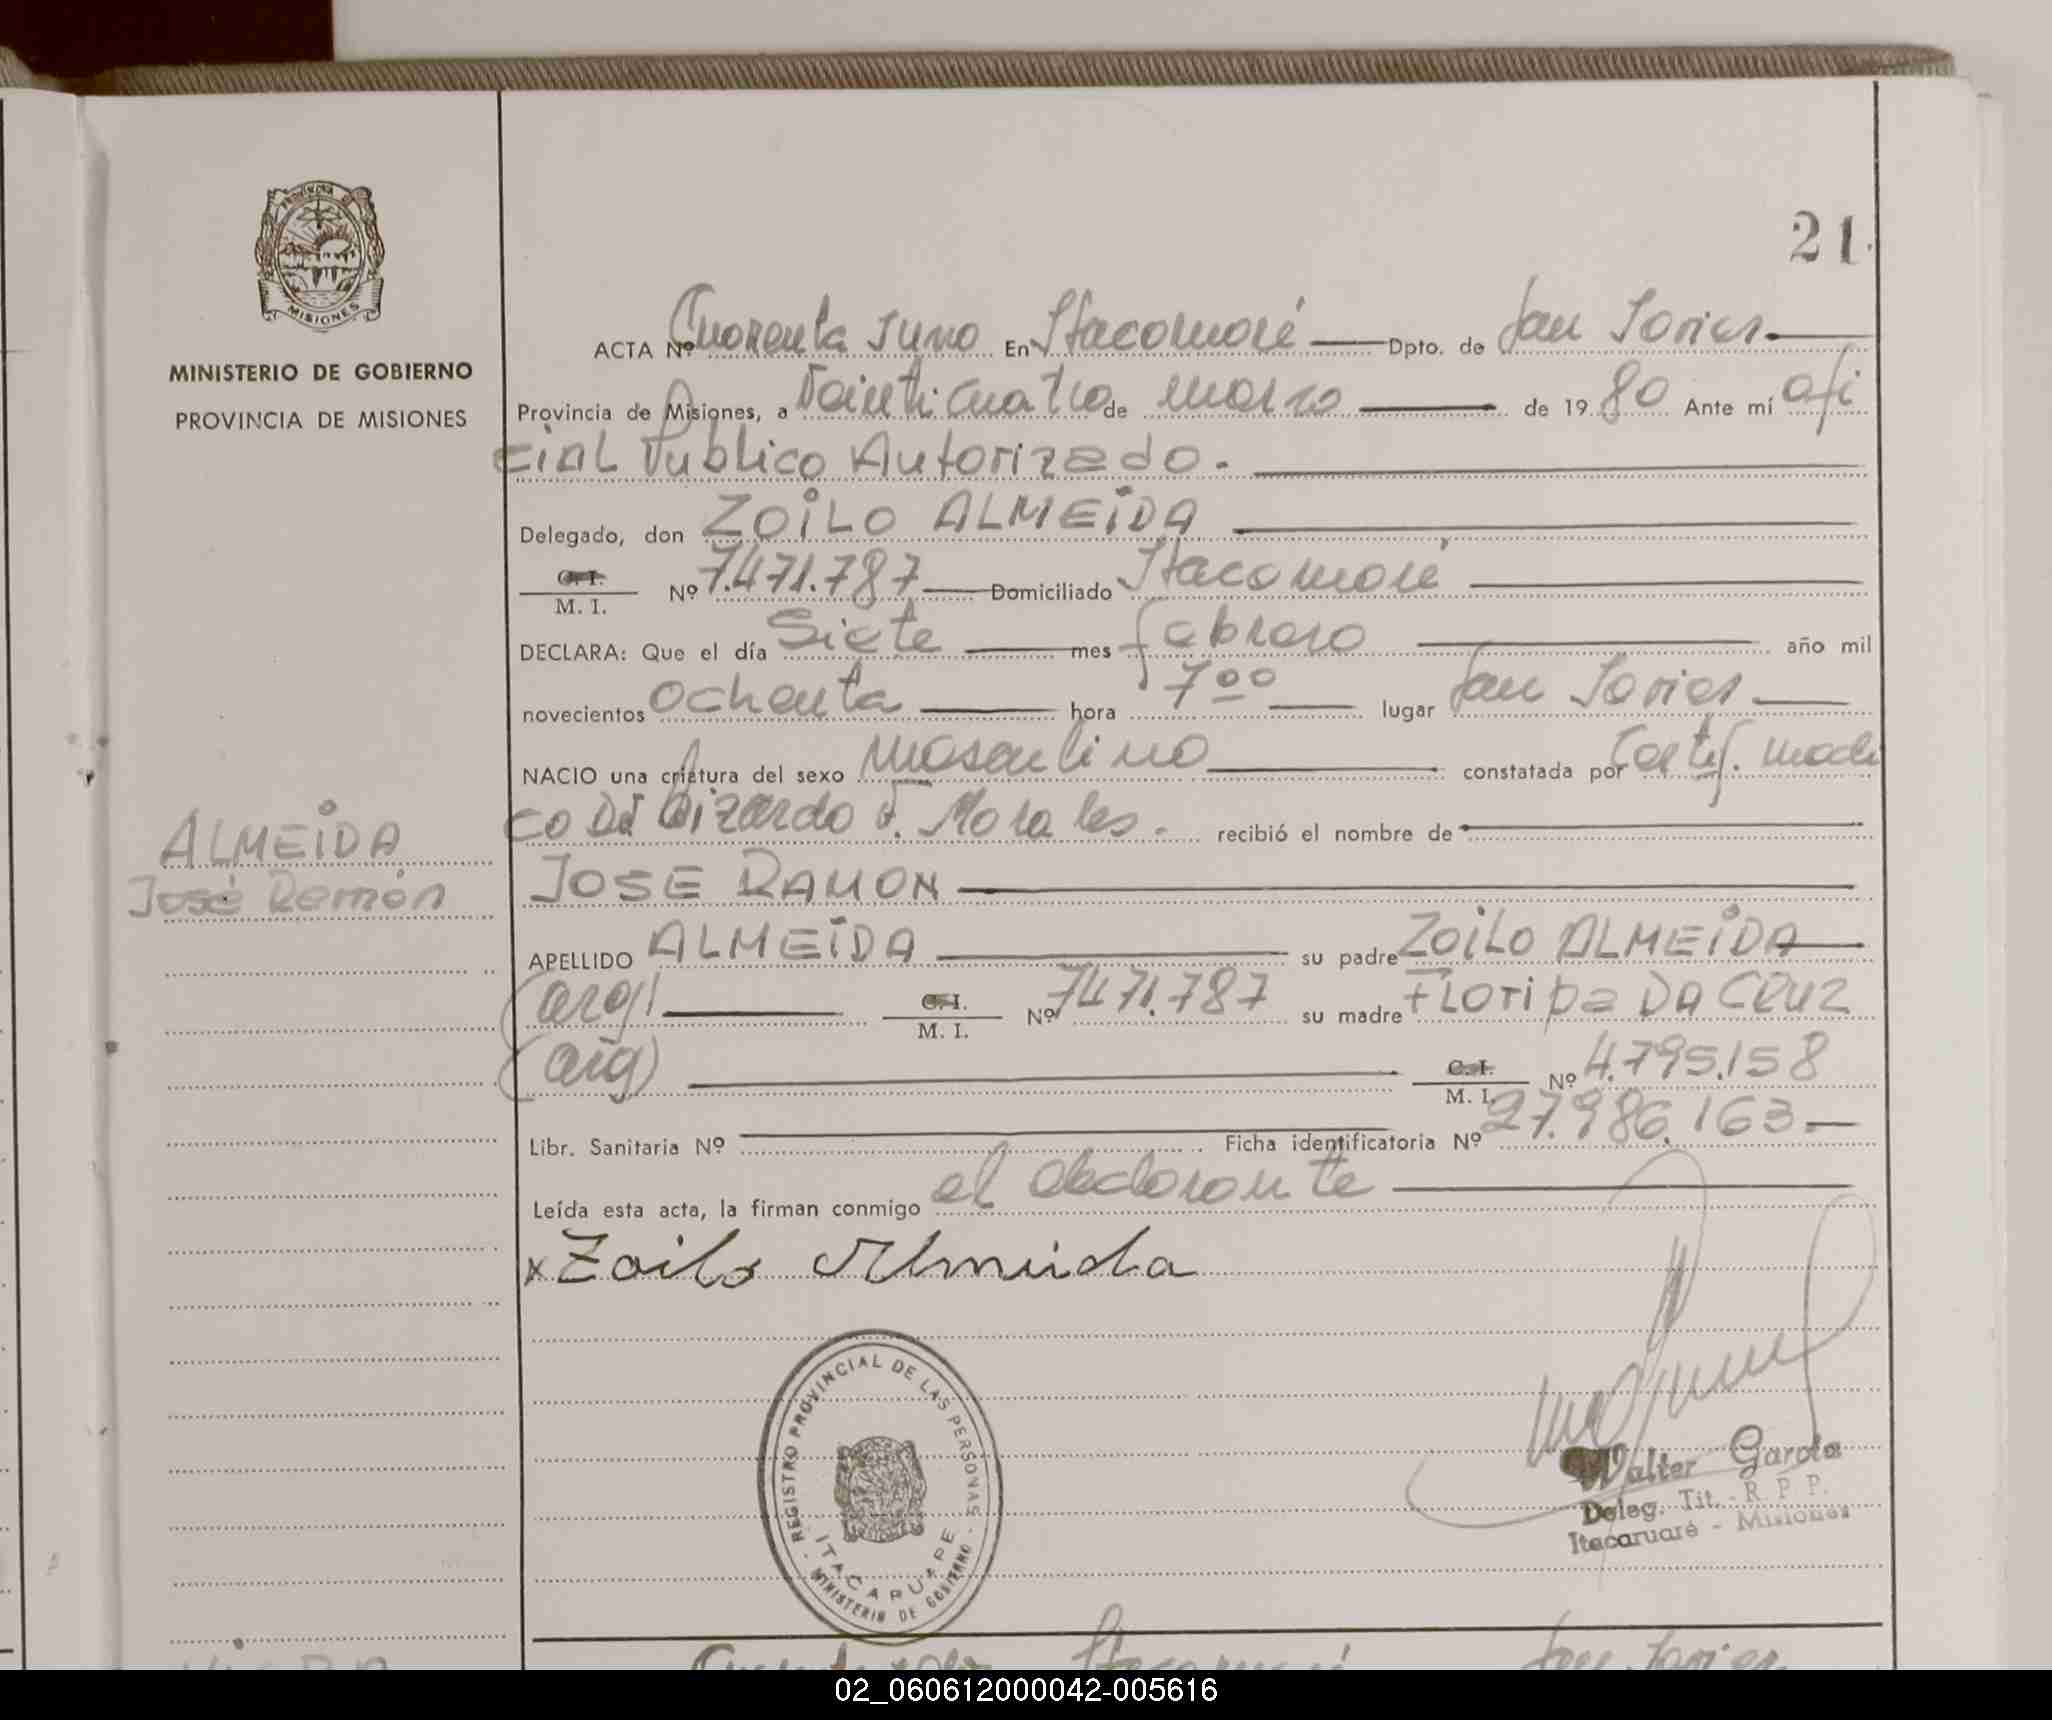 21.
MISIONES
MINISTERIO DE GOBIERNO
PROVINCIA DE MISIONES
ALMEIDA
José Ramón
ACTA Nº Cuarenta y uno En Itacaruaré Dpto. de San Javier
Provincia de Misiones, a Veinticuatro de marzo de 19 80 Ante mí ofi
cial Publico Autorizado.
Delegado, don ZOILO ALMEIDA
C. I. / M. I. Nº 7.471.787 Domiciliado Itacaruaré
DECLARA: Que el día Siete mes febrero año mil
novecientos ochenta hora 7 00 lugar San Javier
NACIO una criatura del sexo masculino constatada por Certif. medi
co Dr Lizardo F. Morales. recibió el nombre de
JOSE RAMON
APELLIDO ALMEIDA su padre ZOILO ALMEIDA
(arg) C. I. / M. I. Nº 7471.787 su madre FLORIPA DA CRUZ
(arg) C. I. / M. I. Nº 4.795.158
Libr. Sanitaria Nº Ficha identificatoria Nº 27.986.163
Leída esta acta, la firman conmigo el declarante
x Zoilo Almeida
REGISTRO PROVINCIAL DE LAS PERSONAS
ITACARUARE
MINISTERIO DE GOBIERNO
Walter García
Deleg. Tit. - R. P. P.
Itacaruaré - Misiones
San Javier
02_060612000042-005616